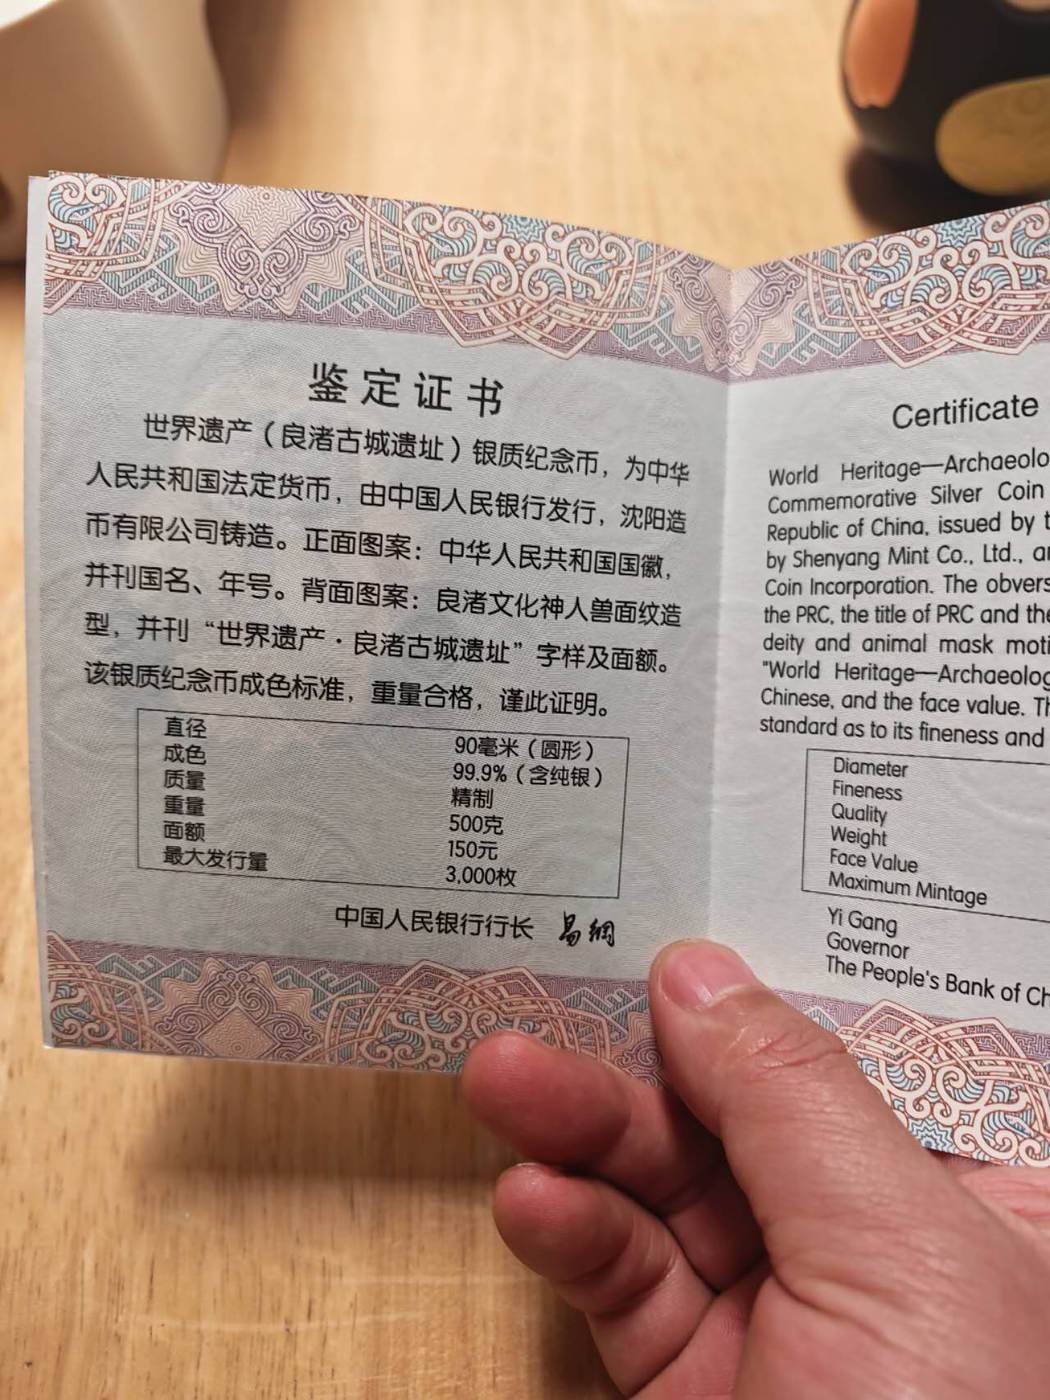 鉴定证书
世界遗产（良渚古城遗址）银质纪念币，为中华
人民共和国法定货币，由中国人民银行发行，沈阳造
币有限公司铸造。正面图案：中华人民共和国国徽，
并刊国名、年号。背面图案：良渚文化神人兽面纹造
型，并刊“世界遗产·良渚古城遗址”字样及面额。
该银质纪念币成色标准，重量合格，谨此证明。
直径 90毫米（圆形）
成色 99.9%（含纯银）
质量 精制
重量 500克
面额 150元
最大发行量 3,000枚
中国人民银行行长 易纲
Certificate
World Heritage—Archaeolo
Commemorative Silver Coin
Republic of China, issued by t
by Shenyang Mint Co., Ltd., a
Coin Incorporation. The obvers
the PRC, the title of PRC and the
deity and animal mask moti
"World Heritage—Archaeolog
Chinese, and the face value. Th
standard as to its fineness and
Diameter
Fineness
Quality
Weight
Face Value
Maximum Mintage
Yi Gang
Governor
The People's Bank of Ch